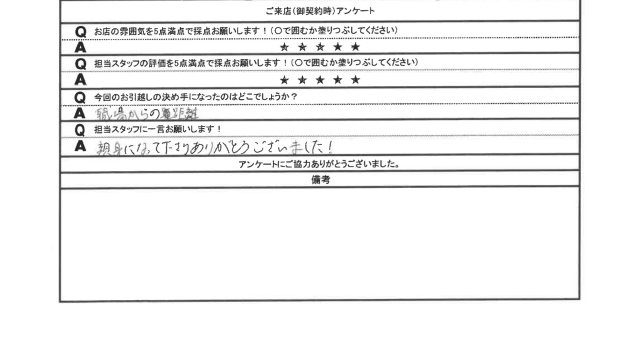 ご来店(御契約時)アンケート
Q お店の雰囲気を5点満点で採点お願いします!(〇で囲むか塗りつぶしてください)
A ★ ★ ★ ★ ★
Q 担当スタッフの評価を5点満点で採点お願いします!(〇で囲むか塗りつぶしてください)
A ★ ★ ★ ★ ★
Q 今回のお引越しの決め手になったのはどこでしょうか?
A 職場からの距離
Q 担当スタッフに一言お願いします!
A 親身になって下さりありがとうございました!
アンケートにご協力ありがとうございました。
備考